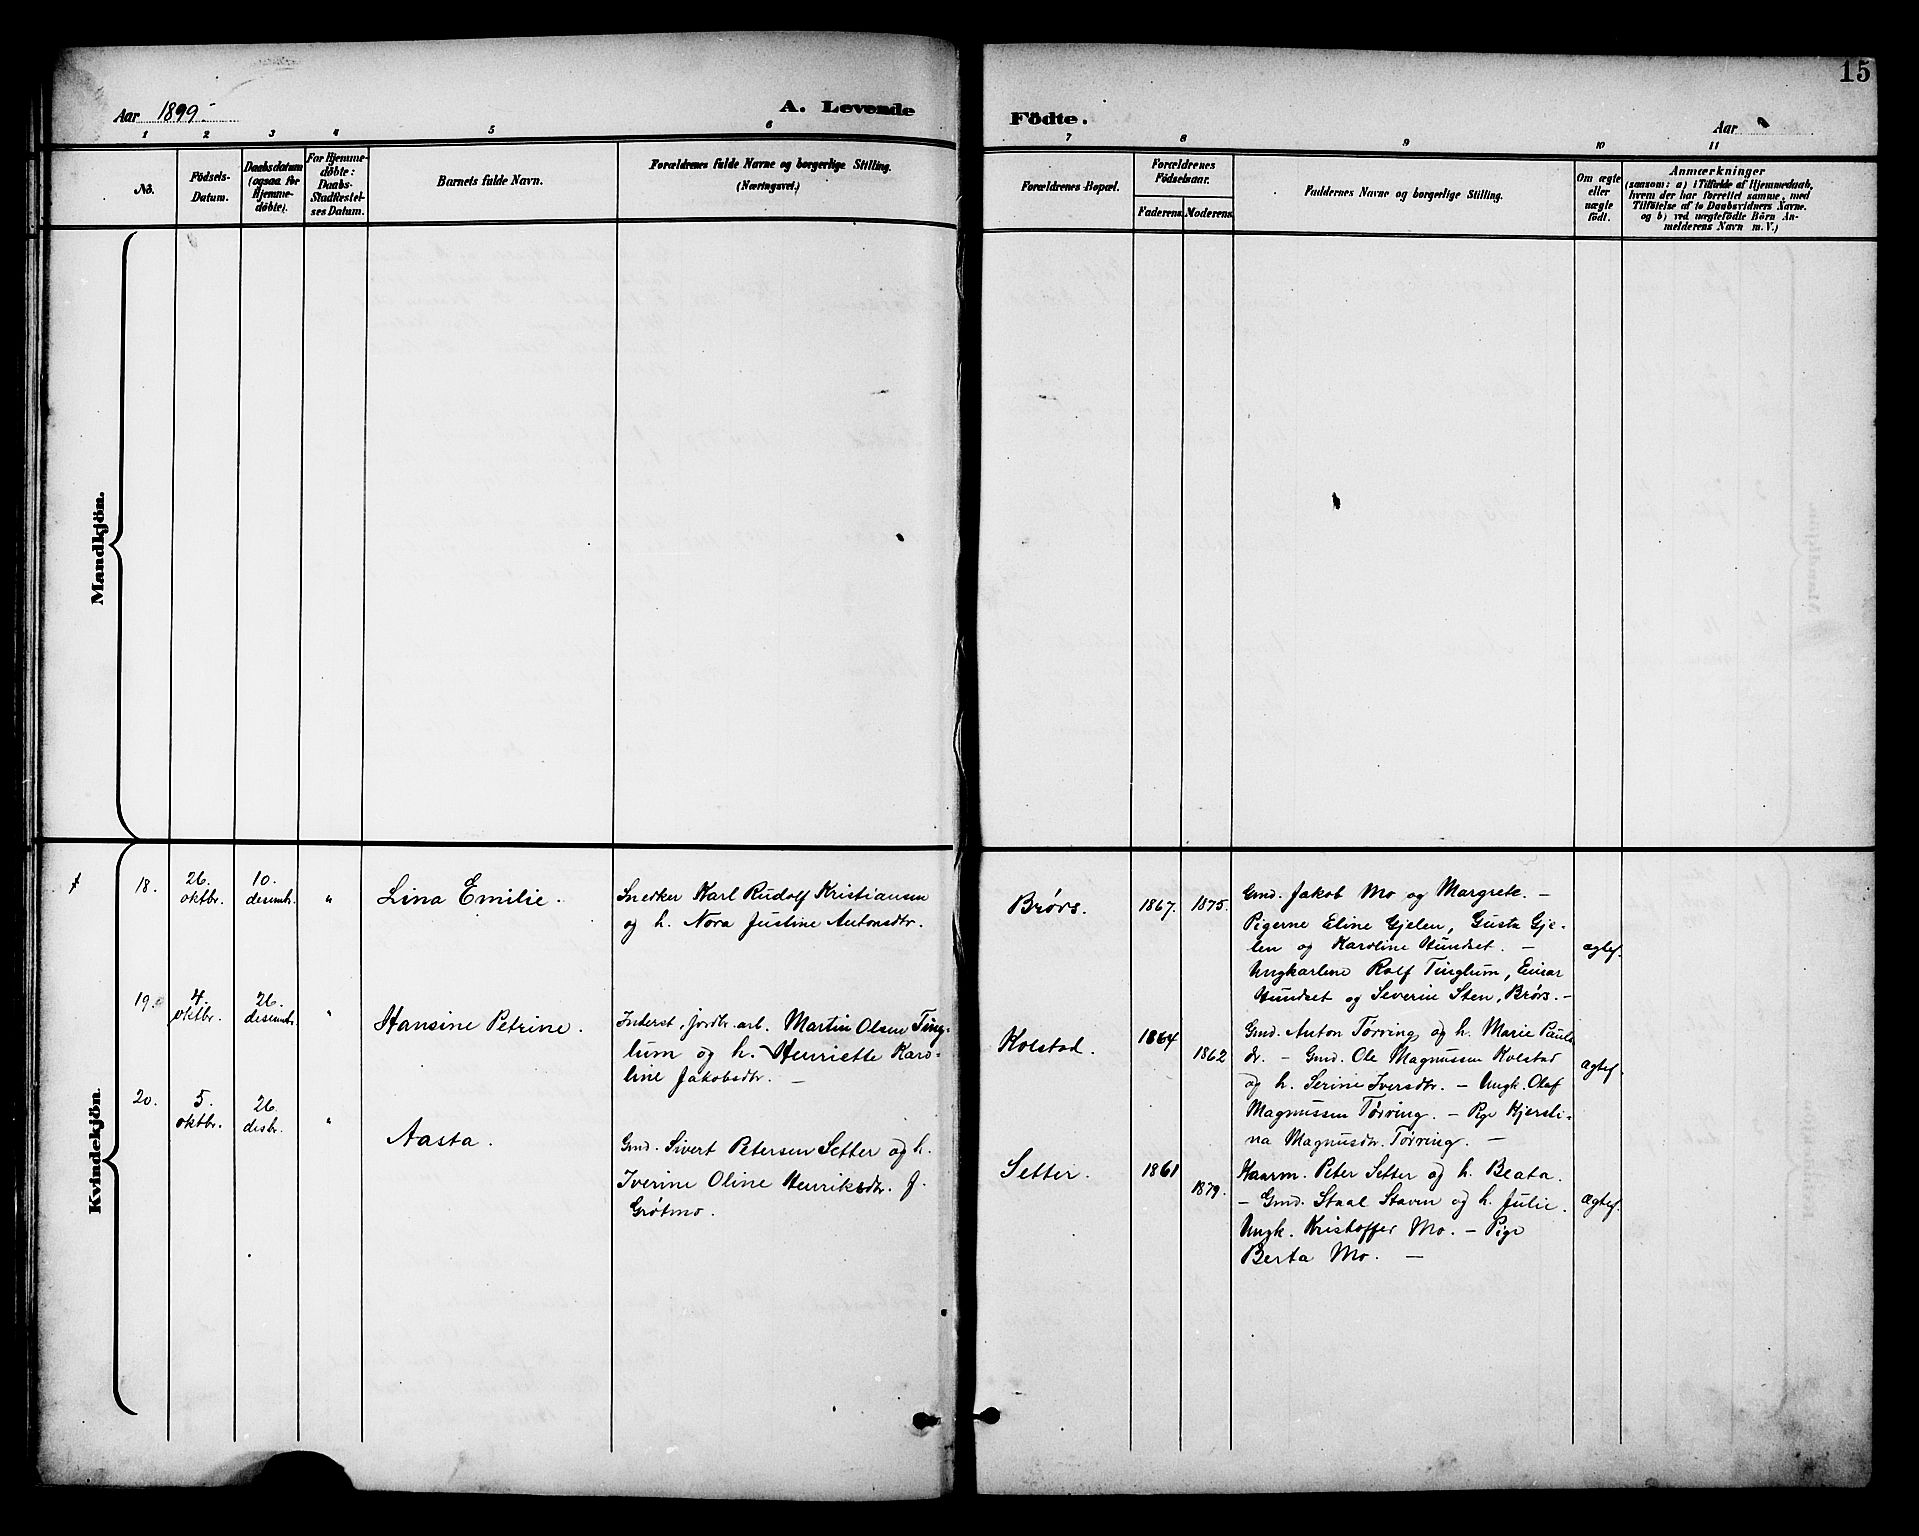 15
Aar 1899.
A. Levende
Födte.
Aar
1 2 3 4 5 6 7 8 9 10 11
No.
Födsels-
Datum.
Daabsdatum
(ogsaa for
Hjemme-
døbte).
For Hjemme-
døbte:
Daabs-
Stadfæstel-
ses Datum.
Barnets fulde Navn.
Forældrenes fulde Navne og borgerlige Stilling.
(Næringsvei.)
Forældrenes Bopæl.
Forældrenes
Födselsaar.
Faderens.
Moderens.
Faddernes Navne og borgerlige Stilling.
Om ægte
eller
uægte
födt.
Anmærkninger
(saasom: a) i Tilfælde af Hjemmedaab,
hvem der har forrettet samme, med
Tilföielse af to Daabsvidners Navne.
og b) ved uægtefödte Börn An-
melderens Navn m. V.)
Mandkjön.
Kvindekjön.
18.
26.
oktbr.
10.
desembr.
"
Lina Emilie.
Snedker Karl Rudolf Kristiansen
og h. Nora Justine Antonsdtr.
Brørs.
1867.
1875.
Gmd. Jakob Mo og Margrete. –
Pigerne Eline Gjelen, Gusta Gje-
len og Karoline Hundset. –
Ungkarlene Rolf Tinglum, Einar
Hundset og Severin Sten, Brørs. –
ægtef.
19.
4.
oktbr.
26.
desembr.
"
Hansine Petrine.
Inderst, jordbr. arb. Martin Olsen Ting-
lum og h. Henriette Karo-
line Jakobsdtr. –
Kolstad.
1864
1862
Gmd. Anton Tørring og h. Marie Pauls
dr. – Gmd. Ole Magnussen Kolstad
og h. Serine Iversdtr. – Ungk. Olaf
Magnussen Tørring. – Pge Kjersti-
na Magnusdtr. Tørring. –
ægtef.
20.
5.
oktbr.
26.
desbr.
"
Aasta.
Gmd. Sivert Petersen Setter og h.
Iverine Oline Henriksdtr. f.
Grøtmo.
Setter.
1861
1879.
Kaarm. Peter Setter og h. Beata.
– Gmd. Staal Staven og h. Julie.
Ungk. Kristoffer Mo. – Pige
Berta Mo. –
ægtef.